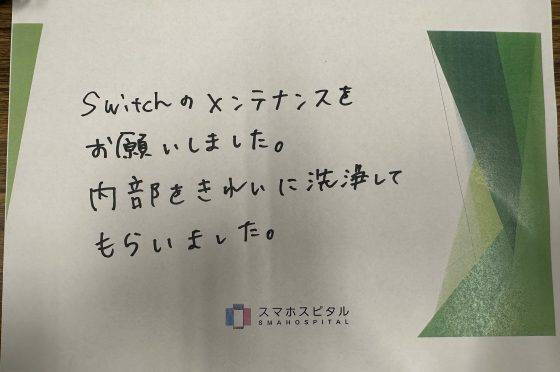 Switchのメンテナンスを
お願いしました。
内部をきれいに洗浄して
もらいました。
スマホスピタル
SMAHOSPITAL